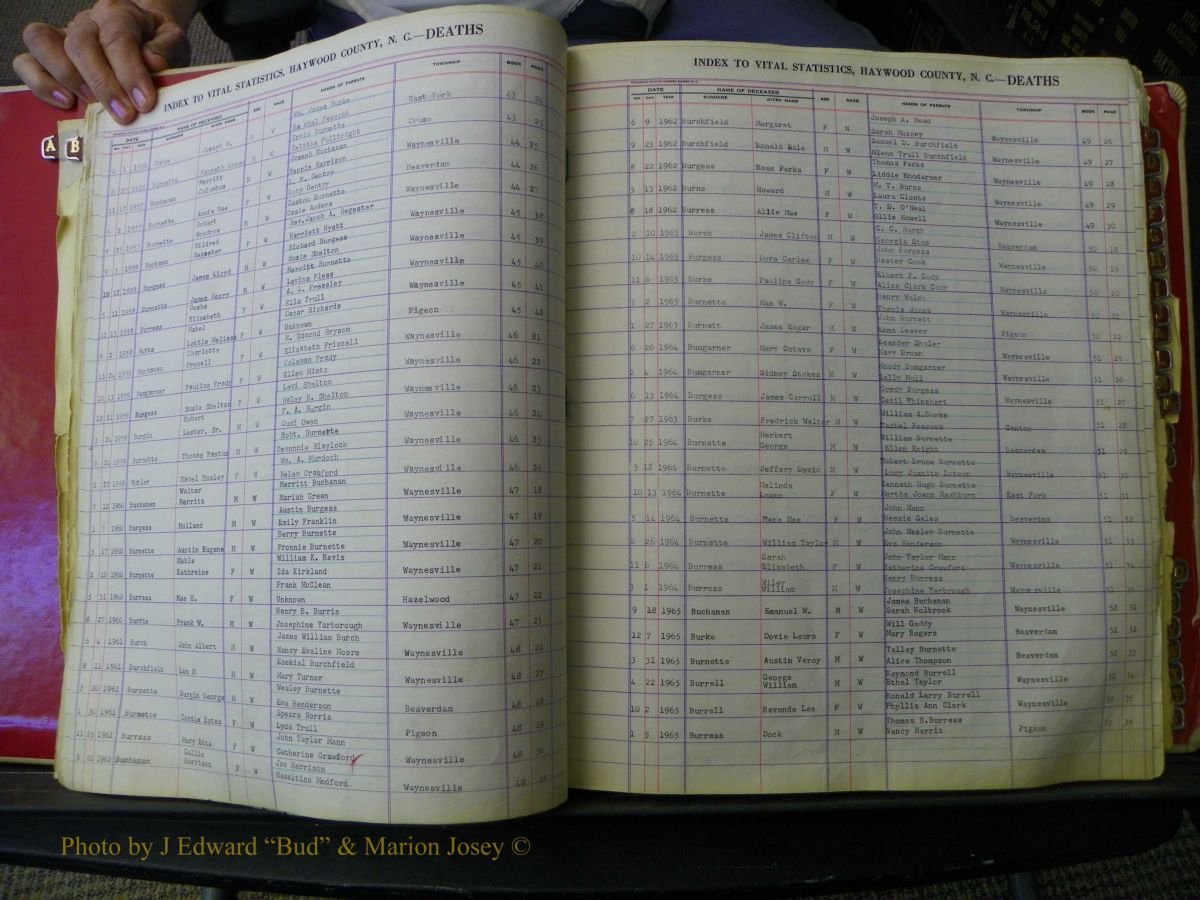 INDEX TO VITAL STATISTICS, HAYWOOD COUNTY, N. C.—DEATHS
DATE NAME OF DECEASED SEX RACE NAMES OF PARENTS TOWNSHIP BOOK PAGE
Joseph W. Wm. James Burke East Fork 43 24
Rachel Peacock
Cruso 43 25
Telitha Fullbright
Merritt Joseph Buchanan Waynesville 44 25
Columbus Nannie Harrison
Annie Mae Beaverdam 44 26
Lucy Gentry
Robert Gaston Burnette Waynesville 44 27
Woodrow Ossie Anders
Mildred Rev. Jacob A. Regester Waynesville 45 38
Regester Harriett Hyatt
Burgess James Lloyd M W Richard Burgess Waynesville 45 39
Susie Shelton
Burnette James Henry Merritt Burnette Waynesville 45 40
Lavina Pless
Elizabeth A. L. Pressley Waynesville 45 41
Ella Trull
Mabel Oscar Richards Pigeon 45 42
Unknown
Charlotte H. Edmond Bryson Waynesville 46 21
Elizabeth Frizzell
Bumgarner Pauline Frady F W Coleman Frady Waynesville 46 22
Ellen Mintz
Burgess Susie Shelton F W Lavi Shelton Waynesville 46 23
Burgin Robert F. A. Burgin Waynesville 46 24
Lester, Sr. Dumi Owen
Burnette Thomas Rastus M W Robt. Burnette Waynesville 46 25
Devonnie Blaylock
1959 Butler Mabel Ensley F W Wm. A. Murdoch Waynesville 46 26
Helen Crawford
7 12 1960 Buchanan Walter Merritt Buchanan Waynesville 47 18
Merritt M W Mariah Green
1 7 1960 Burgess Holland M W Austin Burgess Waynesville 47 19
Emily Franklin
5 27 1960 Burnette Austin Eugene M W Berry Burnette Waynesville 47 20
Fronnie Burnette
2 10 1960 Burnette Mable William K. Revis Waynesville 47 21
Kathreine F W Ida Kirkland
5 31 1960 Burress Mae H. F W Frank McClean Hazelwood 47 22
Unknown
8 27 1960 Burris Frank W. M W Henry B. Burris Waynesville 47 23
Josephine Yarborough
6 4 1961 Burch John Albert M W James William Burch Waynesville 48 26
Nancy Evaline Moore
8 22 1961 Burchfield M W Ezekial Burchfield Waynesville 48 27
Mary Turner
3 20 1961 Burnette Burgin George M W Wesley Burnette Beaverdam 48 28
Eva Henderson
1 30 1961 Burnette Cordia Estes F W Spears Norris Pigeon 48 29
Lyda Trull
11 23 1961 Burress Mary Etta F W John Taylor Mann Waynesville 48 30
Catherine Crawford
Callie Joe Harrison Waynesville 49 25
Harrison F W Hazeltine Medford
INDEX TO VITAL STATISTICS, HAYWOOD COUNTY, N. C.—DEATHS
DATE NAME OF DECEASED
MO. DAY YEAR SURNAME GIVEN NAME SEX RACE NAMES OF PARENTS TOWNSHIP BOOK PAGE
6 9 1962 Burchfield Margaret F W Joseph A. Head Waynesville 49 26
Sarah Massey
9 23 1962 Burchfield Ronald Dale M W Samuel D. Burchfield Waynesville 49 27
Glenn Trull Burchfield
8 22 1962 Burgess Rosa Parks F W Thomas Parks Waynesville 49 28
Liddie Rhodarmer
5 13 1962 Burns Howard M W M. T. Burns Waynesville 49 29
Laura Clontz
8 18 1962 Burress Allie Mae F W T. D. O'Neal Waynesville 49 30
Ollie Howell
2 10 1963 Burch James Clifton M W C. C. Burch Beaverdam 50 18
Georgia Sims
10 14 1963 Burgess Dora Carlee F W John Burgess Waynesville 50 19
Hester Cook
11 6 1963 Burke Pauline Cody F W Elbert F. Cody Waynesville 50 20
Alice Clark Cody
3 2 1963 Burnette Mae W. F W Henry Welch Waynesville 50 21
Jones
1 27 1963 Burnett James Edgar M W John Burnett Pigeon 50 22
Emma Deaver
6 26 1964 Bumgarner Mary Octava F W Leander Shuler Waynesville 51 25
Mary Brown
2 4 1964 Bumgarner Sidney Stokes M W Moody Bumgarner Waynesville 51 26
Sally Hull
6 13 1964 Burgess James Carroll M W Gredy Burgess Waynesville 51 27
Cecil Rhinehart
7 27 1963 Burke Fredrick Walter M W William A. Burke Canton 51 28
Rachel Peacock
10 25 1964 Burnette Herbert William Burnette Beaverdam 51 29
George M W Ellen Knight
3 18 1964 Burnette Jeffery David M W Robert Bruce Burnette Waynesville 51 30
Lucy Juanita Dotson
10 13 1964 Burnette Malinda Kenneth Hugh Burnette East Fork 51 31
Luann F W Martha Joann Mashburn
5 14 1964 Burnette Rena Mae F W John Mann Beaverdam 51 32
Bessie Sales
2 26 1964 Burnette William Taylor M W John Wesley Burnette Waynesville 51 33
Eva Henderson
11 6 1964 Burress Sarah John Taylor Mann Waynesville 51 34
Elizabeth F W Katherine Crawford
3 1 1964 Burress Wiley Henry Burress Waynesville 51 35
William M W Josephine Yarbrough
9 18 1965 Buchanan Emanuel W. M W James Buchanan Waynesville 52 31
Sarah Holbrook
12 7 1965 Burke Dovie Laura F W Will Gaddy Beaverdam 52 32
Mary Rogers
3 31 1965 Burnette Austin Veroy M W Talley Burnette Beaverdam 52 33
Alice Thompson
4 22 1965 Burrell George Raymond Burrell Waynesville 52 34
William M W Ethel Taylor
10 2 1965 Burrell Revonda Lea F W Ronald Larry Burrell Waynesville 52 35
Phyllis Ann Clark
1 5 1965 Burress Dock M W Thomas B. Burress Pigeon 52 36
Nancy Harris
A B
Photo by J Edward “Bud” & Marion Josey ©